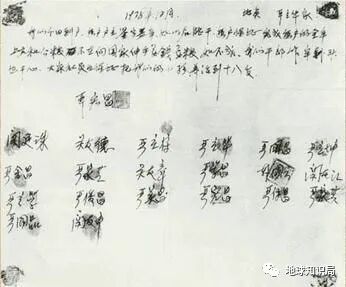 1978.12月. 地点 严立华家
我们分田到户,每户户主签字盖章,如以后能干,每户保证完成每户的全年
上交和公粮,不在向国家伸手要钱要粮,如不成,我们干部作牢刹头
也干心,大家社员也保证把我们的小孩养活到十八岁。
严宏昌
关廷珠 关友德 严立符 严立华 严国昌 严立坤
严金昌 严家芝 关友章 严学昌 韩国云 关友江
严立学 严俊昌 严美昌 严宏昌 严付昌 严家其
严国品 关友申
地球知识局